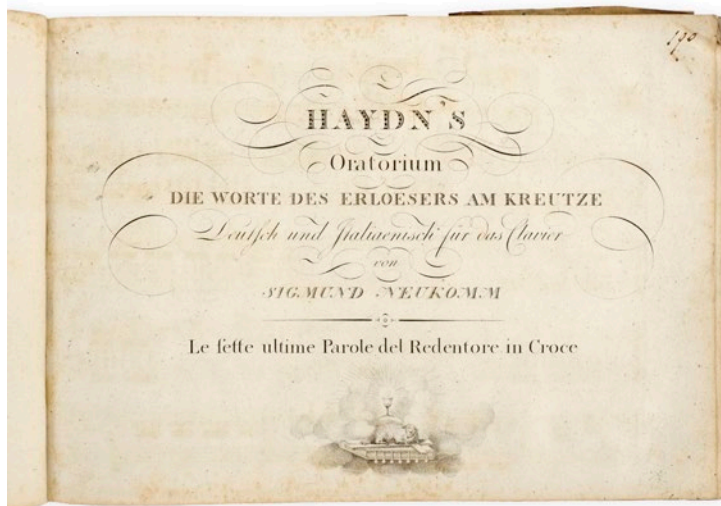 190
HAYDN'S
Oratorium
DIE WORTE DES ERLOESERS AM KREUTZE
Deutſch und Italiaenisch für das Clavier
von
SIGMUND NEUKOMM
Le ſette ultime Parole del Redentore in Croce